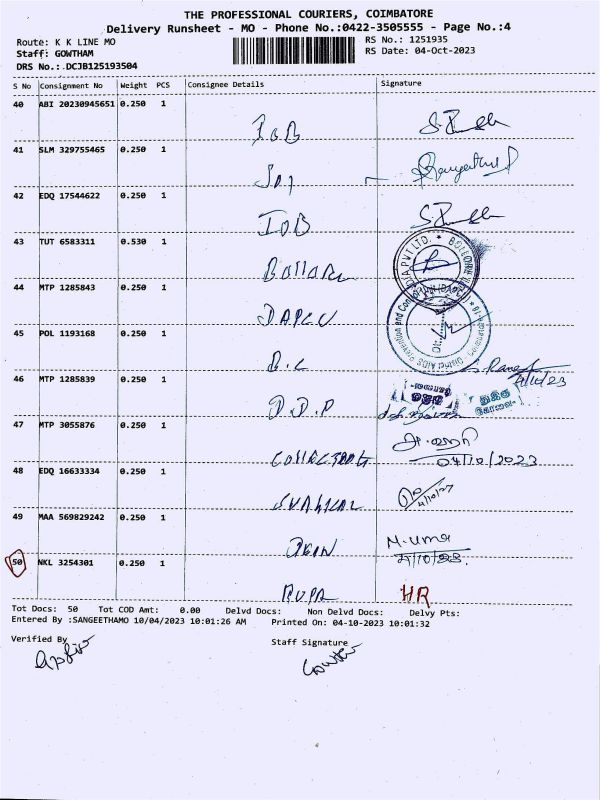 THE PROFESSIONAL COURIERS, COIMBATORE
Delivery Runsheet - MO - Phone No.:0422-3505555 - Page No.:4
Route: K K LINE MO
Staff: GOWTHAM
DRS No.: DCJB125193504
RS No.: 1251935
RS Date: 04-Oct-2023
S No Consignment No Weight PCS Consignee Details Signature
40 ABI 20230945651 0.250 1
IOB
41 SLM 329755465 0.250 1
42 EDQ 17544622 0.250 1
IOB
43 TUT 6583311 0.530 1
44 MTP 1285843 0.250 1
DAPCU
45 POL 1193168 0.250 1
46 MTP 1285839 0.250 1
D.D.P
4/10/23
47 MTP 3055876 0.250 1
04/10/2023
48 EDQ 16633334 0.250 1
49 MAA 569829242 0.250 1
M.uma
50 NKL 3254301 0.250 1
RUPA HR
Tot Docs: 50 Tot COD Amt: 0.00 Delvd Docs: Non Delvd Docs: Delvy Pts:
Entered By :SANGEETHAMO 10/04/2023 10:01:26 AM Printed On: 04-10-2023 10:01:32
Verified By
Staff Signature